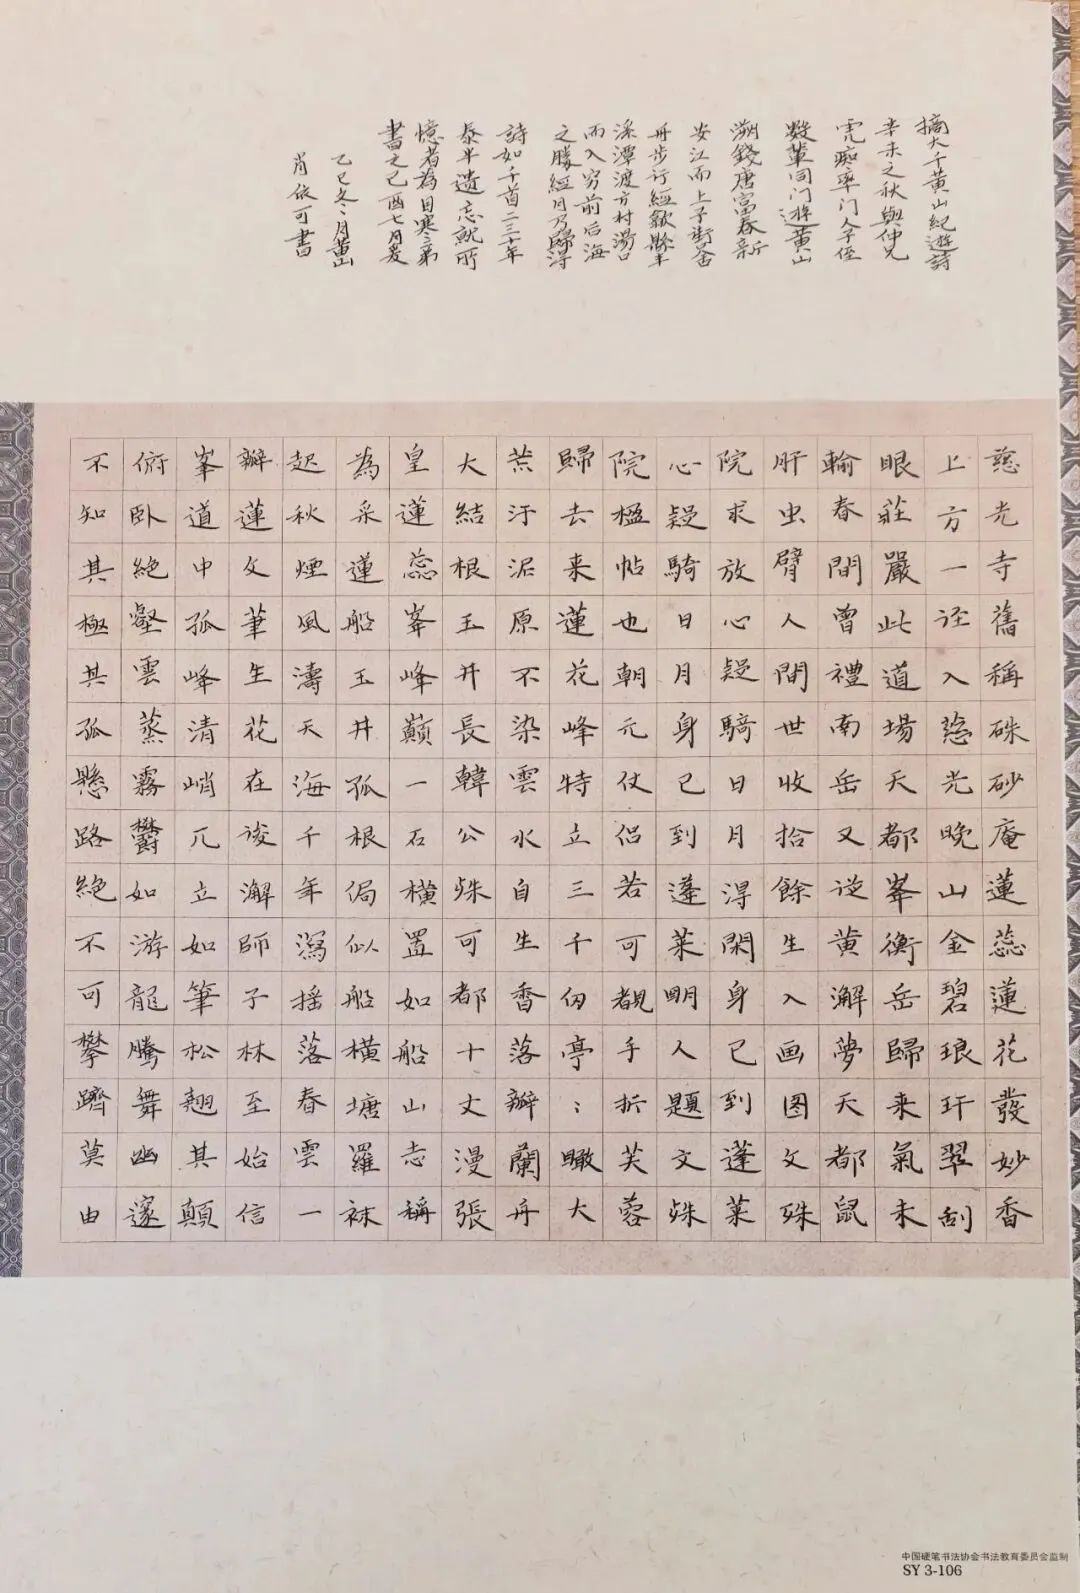 摘大千黄山紀遊詩
辛未之秋與仲兄
虎痴率门人子侄
數輩同门遊黄山
溯錢唐富春新
安江而上子街舍
舟步行經歙縣半
溪潭渡方村湯口
而入穷前后海
之勝經月乃歸得
詩如千首二三十年
泰半遗忘就所
憶者為目寒三弟
書之己酉七月爰
乙巳冬月黄山
肖依可書
慈光寺舊稱硃砂庵蓮蕊蓮花發妙香
上方一径入慈光晚山金碧琅玕翠刮
眼莊嚴此道場天都峯衡岳歸来氣未
輸春間曾禮南岳又従黄澥夢天都鼠
肝虫臂人間世收拾餘生入画图文殊
院求放心疑騎日月得閑身已到蓬莱
心疑騎日月身已到蓬莱明人題文殊
院楹帖也朝元仗侣若可覩手折芙蓉
歸去来蓮花峰特立三千仞亭〻瞰大
荒汙泥原不染雲水自生香落瓣蘭舟
大結根玉井長韓公殊可都十丈漫張
皇蓮蕊峯峰巔一石橫置如船山志稱
為采蓮船玉井孤根侷似船橫塘羅袜
起秋煙風濤天海千年瀉摇落春雲一
瓣蓮文筆生花在後澥師子林至始信
峯道中孤峰清峭兀立如筆松翘其顛
俯卧絶壑雲蒸霧鬱如游龍騰舞幽邃
不知其極其孤懸路絶不可攀躋莫由
中国硬笔书法协会书法教育委员会监制
SY 3-106